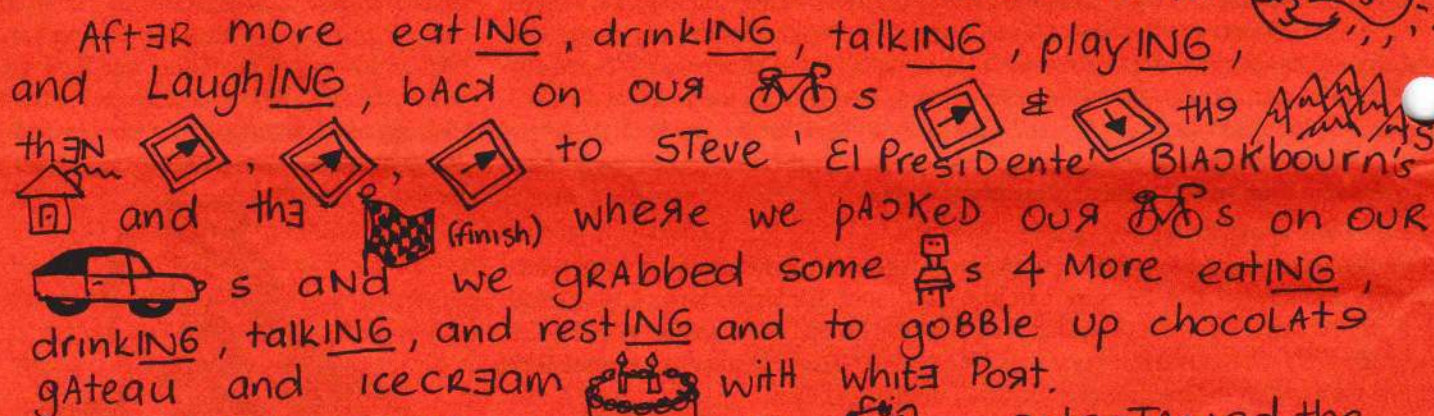 AftER more eatING, drinkING, talkING, playING,
and LaughING, bAck on ouR s & the s
thEN , , to STeve 'El PresiDente' BlACKbourn's
and thE (finish) wheRe we pACKeD ouR s on ouR
s aNd we gRAbbed some s 4 More eatING,
drinkING, talkING, and restING and to goBBle up chocoLAte
gAteau and icecREam witH whitE PoRt.